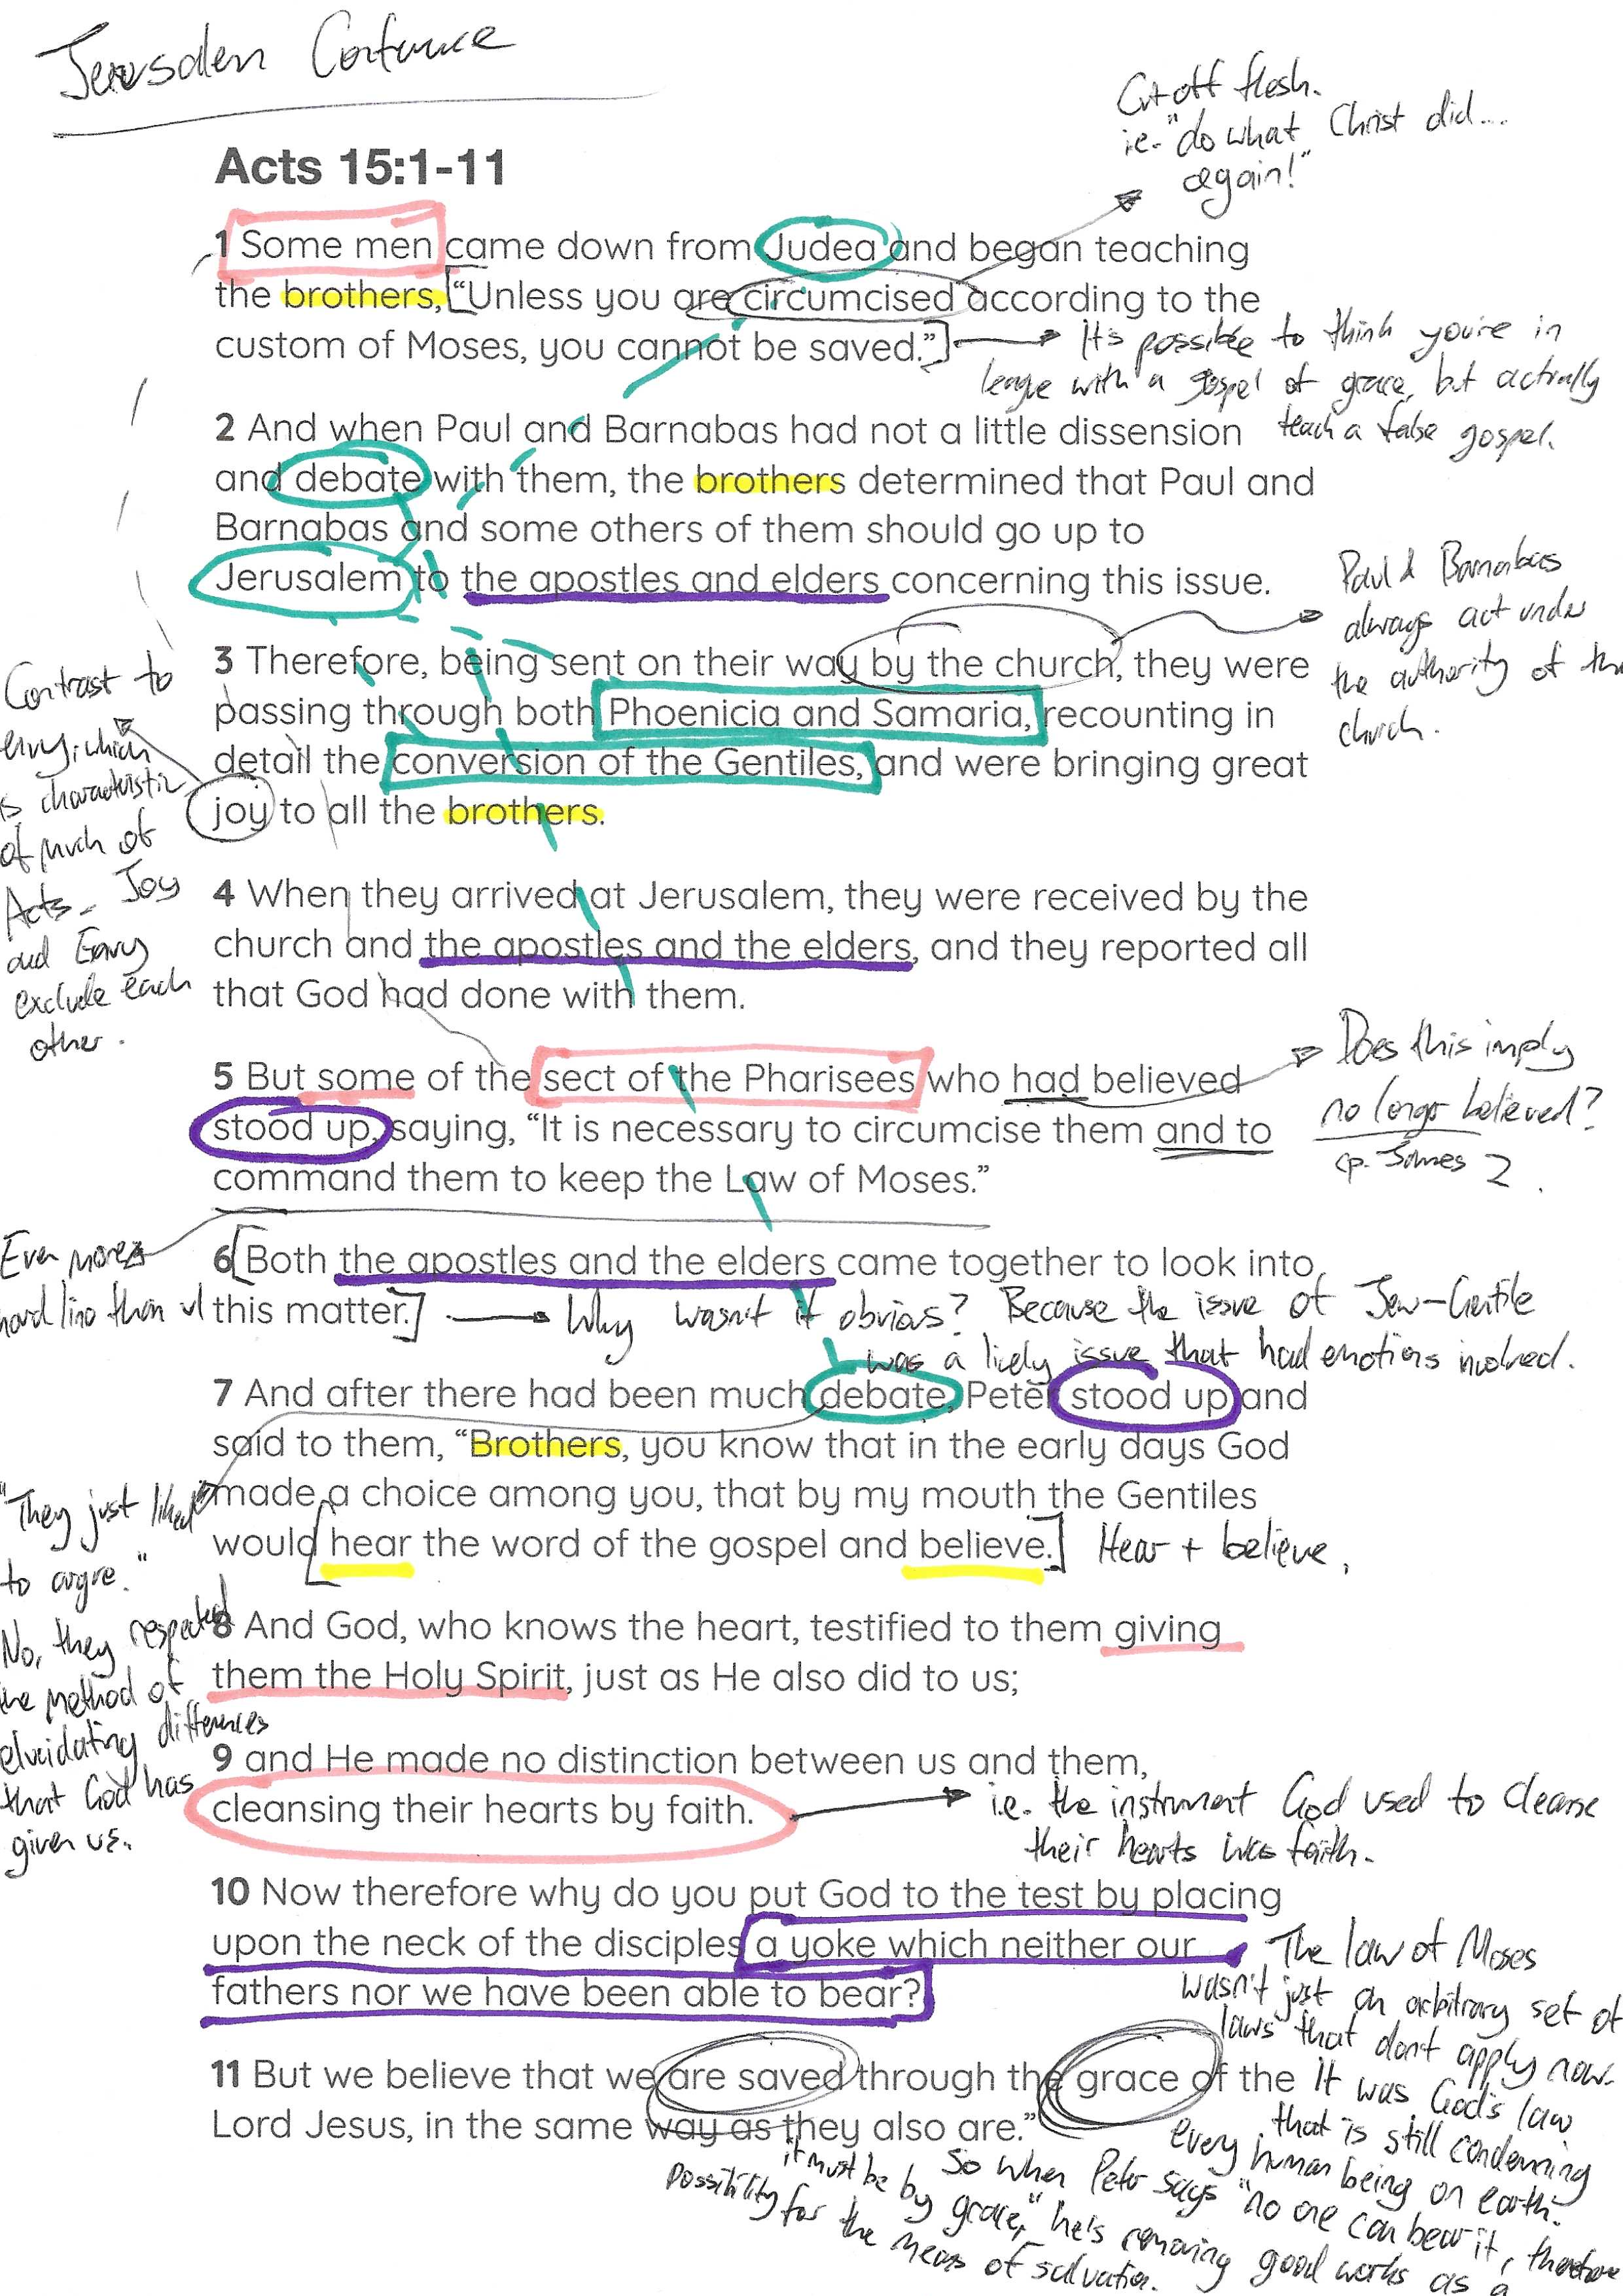 Jerusalem Conference
Cut off flesh.
i.e. "do what Christ did...
again!"
Acts 15:1-11
1 Some men came down from Judea and began teaching
the brothers, ["Unless you are circumcised according to the
custom of Moses, you cannot be saved."]
It's possible to think you're in
league with a gospel of grace, but actually
teach a false gospel.
2 And when Paul and Barnabas had not a little dissension
and debate with them, the brothers determined that Paul and
Barnabas and some others of them should go up to
Jerusalem to the apostles and elders concerning this issue.
Paul & Barnabas
always act under
the authority of the
church.
3 Therefore, being sent on their way by the church, they were
passing through both Phoenicia and Samaria, recounting in
detail the conversion of the Gentiles, and were bringing great
joy to all the brothers.
Contrast to
envy, which
is characteristic
of much of
Acts. Joy
and Envy
exclude each
other.
4 When they arrived at Jerusalem, they were received by the
church and the apostles and the elders, and they reported all
that God had done with them.
5 But some of the sect of the Pharisees who had believed
stood up, saying, "It is necessary to circumcise them and to
command them to keep the Law of Moses."
Does this imply
no longer believed?
cp. James 2.
Even more
hard line than v1
6 [Both the apostles and the elders came together to look into
this matter.]
Why wasn't it obvious? Because the issue of Jew-Gentile
was a lively issue that had emotions involved.
7 And after there had been much debate, Peter stood up and
said to them, "Brothers, you know that in the early days God
made a choice among you, that by my mouth the Gentiles
would [hear the word of the gospel and believe.] Hear + believe.
"They just liked
to argue."
No, they respected
the method of
elucidating differences
that God has
given us.
8 And God, who knows the heart, testified to them giving
them the Holy Spirit, just as He also did to us;
9 and He made no distinction between us and them,
cleansing their hearts by faith.
i.e. the instrument God used to cleanse
their hearts was faith.
10 Now therefore why do you put God to the test by placing
upon the neck of the disciples a yoke which neither our
fathers nor we have been able to bear?
11 But we believe that we are saved through the grace of the
Lord Jesus, in the same way as they also are."
The law of Moses
wasn't just an arbitrary set of
laws that don't apply now.
It was God's law
that is still condemning
every human being on earth.
So when Peter says "no one can bear it, therefore
it must be by grace," he's removing good works as a
possibility for the means of salvation.